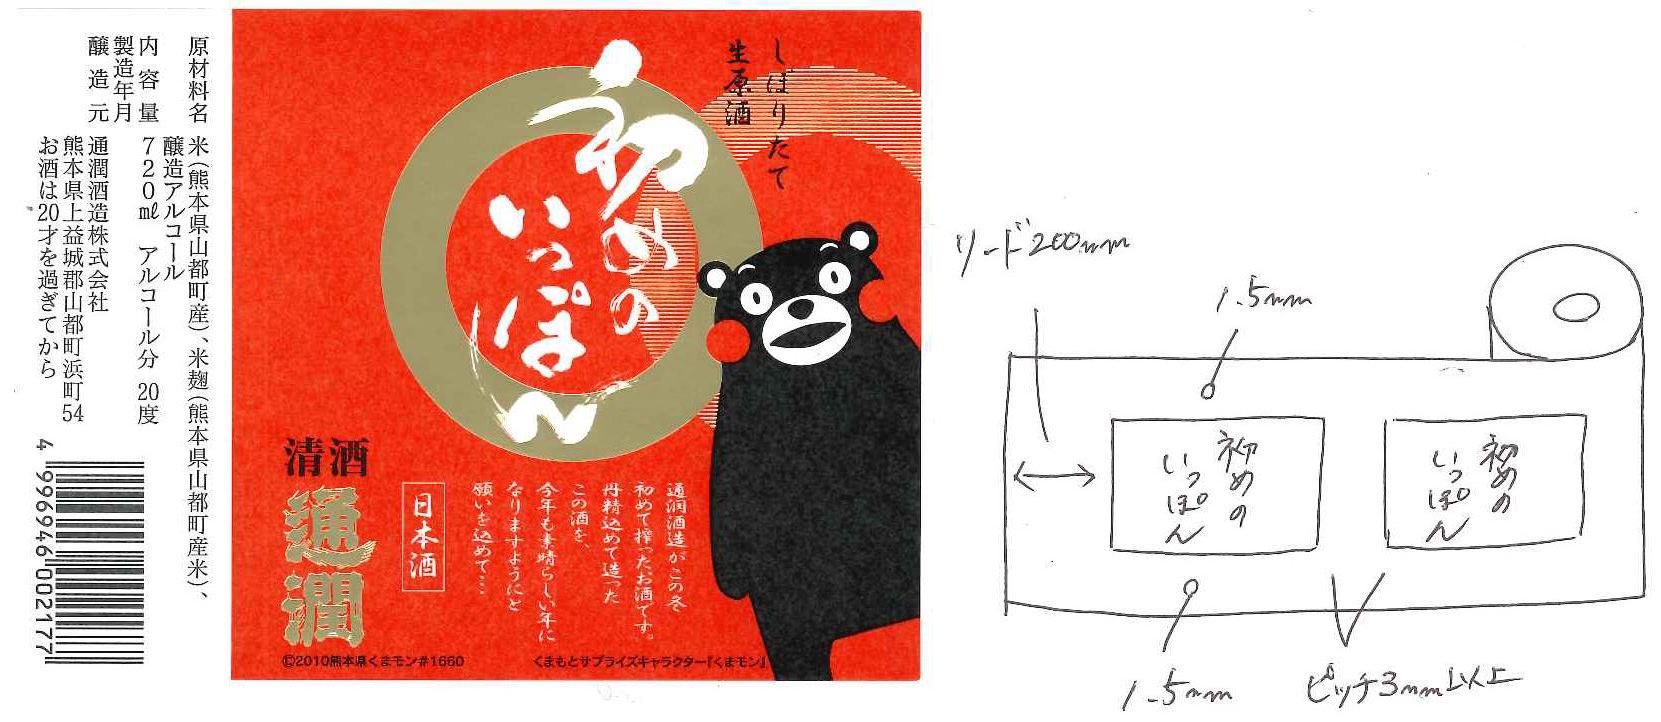 原材料名　米（熊本県山都町産）、米麹（熊本県山都町産米）、
醸造アルコール
内容量　720㎖　アルコール分 20度
製造年月
醸造元　通潤酒造株式会社
熊本県上益城郡山都町浜町54
お酒は20才を過ぎてから
4 996946 002177
しぼりたて
生原酒
初めの
いっぽん
清酒
通潤
日本酒
通潤酒造がこの冬
初めて搾ったお酒です。
丹精込めて造った
この酒を、
今年も素晴らしい年に
なりますようにと
願いを込めて…
©2010熊本県くまモン#1660
くまもとサプライズキャラクター『くまモン』
リード200mm
1.5mm
初めの
いっぽん
初めの
いっぽん
1.5mm
ピッチ3mm以上